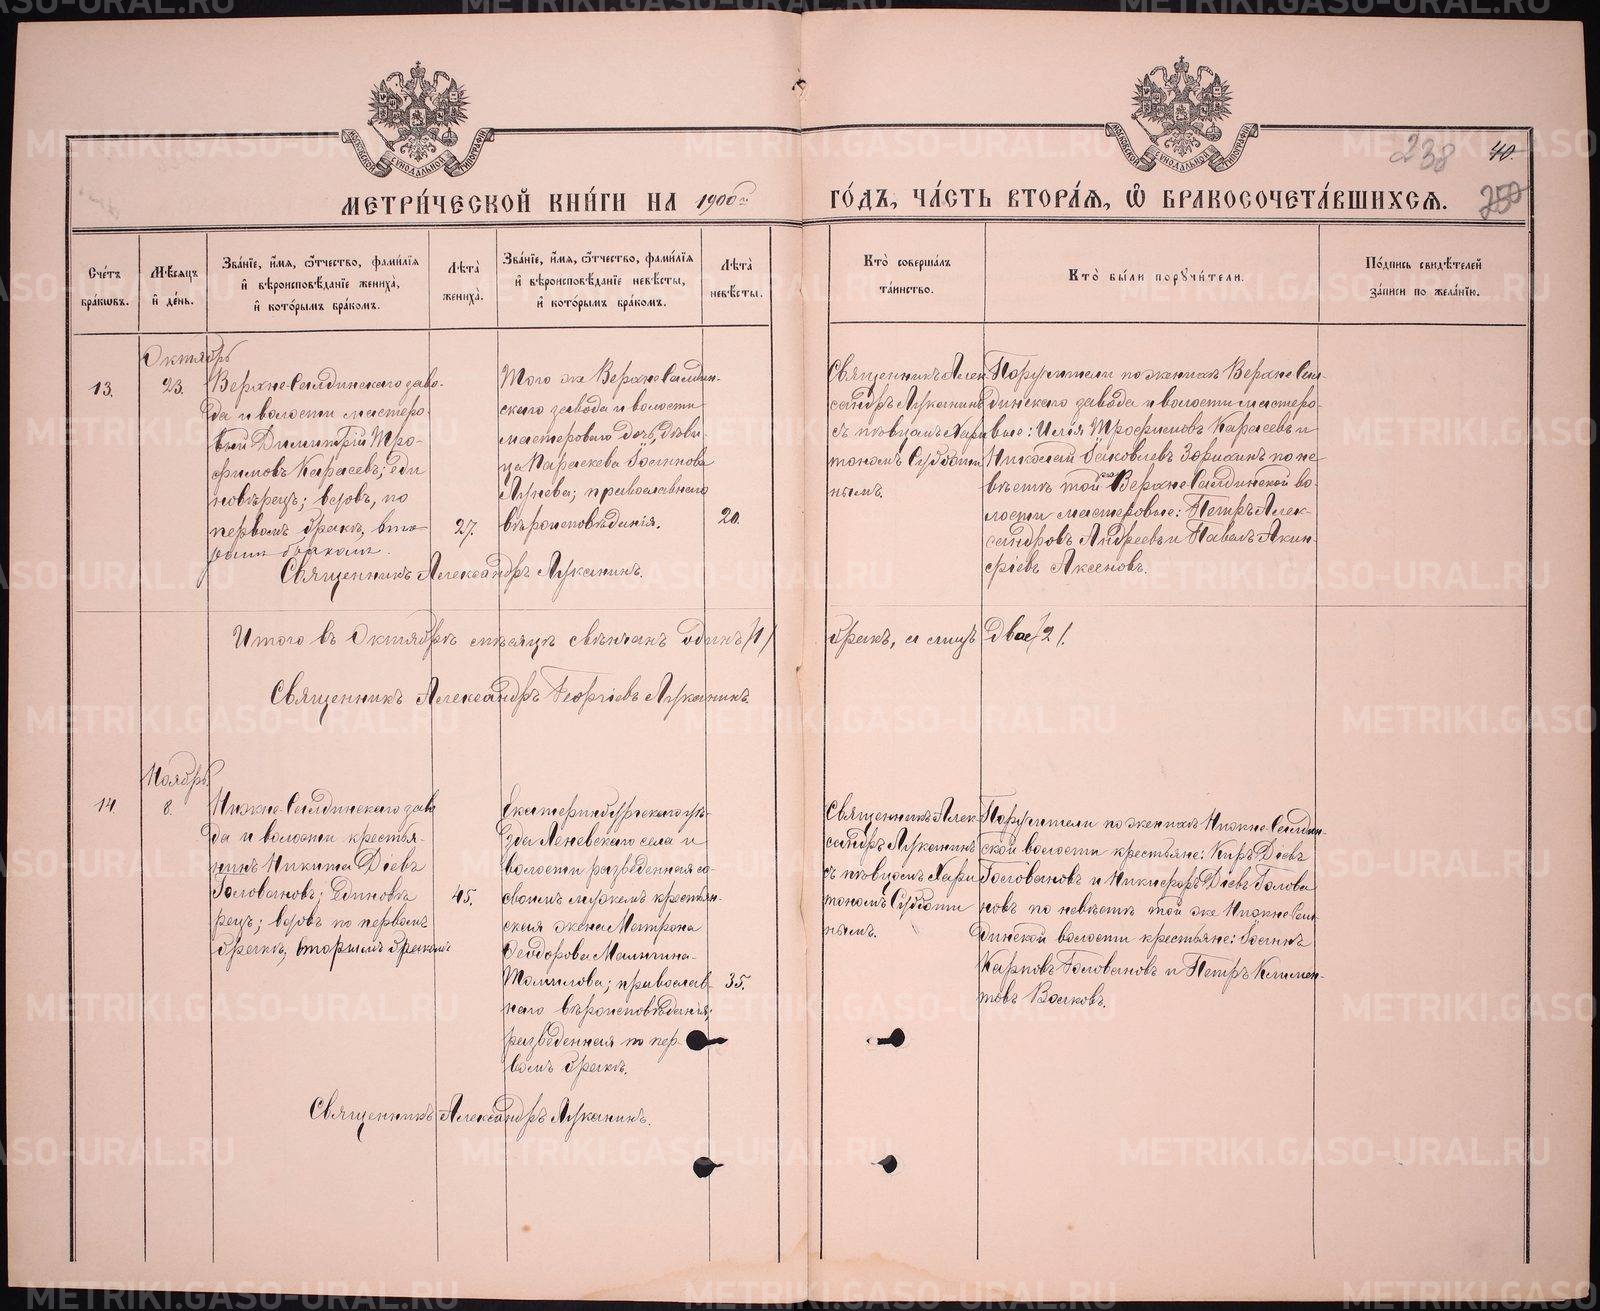 МЕТРИ́ЧЕСКОЙ КНИ́ГИ НА 1900й ГО́ДЪ, ЧА́СТЬ ВТОРА́Я, Ѡ҆ БРАКОСОЧЕТА́ВШИХСЯ.
238 40.
250
МОСКОВСКОЙ СѴНОДАЛЬНОЙ ТИПОГРАФІИ
МОСКОВСКОЙ СѴНОДАЛЬНОЙ ТИПОГРАФІИ
Сче́тъ бра́кѡвъ.
Мѣ́сяцъ и҆ де́нь.
Зва́нїе, и҆́мя, ѻ҆́тчество, фами́лїя и҆ вѣроисповѣ́данїе жениха̀, и҆ кото́рымъ бра́комъ.
Лѣта̀ жениха̀.
Зва́нїе, и҆́мя, ѻ҆́тчество, фами́лїя и҆ вѣроисповѣ́данїе невѣ́сты, и҆ кото́рымъ бра́комъ.
Лѣта̀ невѣ́сты.
Кто̀ соверша́лъ та́инство.
Кто̀ бы́ли порꙋчи́тели.
По́дпись свидѣ́телей за́писи по жела́нїю.
13.
Октябрь
23.
Верхне-Салдинскаго заво-
да и волости мастеро-
вый Димитрій Тро-
фимовъ Карасевъ; еди
новѣрецъ; вдовъ, по
первомъ бракѣ, вто-
рымъ бракомъ.
27.
Того же Верхне-Салдин-
скаго завода и волости
мастероваго дочь, дѣви-
ца Параскева Іоаннова
Лунева; православнаго
вѣроисповѣданія.
20.
Священникъ Алек
сандръ Луканинъ
съ пѣвцомъ Хари
тономъ Субботи
нымъ.
Поручители по женихѣ Верхне-Сал-
динскаго завода и волости мастеро-
вые: Илія Трофимовъ Карасевъ и
Николай Іаковлевъ Зорихинъ по не-
вѣстѣ той же Верхне-Салдинской во-
лости мастеровые: Петръ Алек-
сандровъ Андреевъ и Павелъ Акин-
фіевъ Аксеновъ.
Священникъ Александръ Луканинъ.
Итого въ Октябрѣ мѣсяцѣ свѣнчанъ одинъ /1/ бракъ, а лицъ двое /2/.
Священникъ Александръ Георгіевъ Луканинъ.
14.
Ноябрь
8.
Нижне-Салдинскаго заво
да и волости крестья-
нинъ Никита Діевъ
Головановъ; единовѣ
рецъ; вдовъ по первомъ
бракѣ, вторымъ бракомъ
45.
Екатеринбургскаго уѣ-
зда Леневскаго села и
волости разведенная со
своимъ мужемъ крестьян-
ская жена Матрона
Феодорова Малыгина-
Томилова; православ-
наго вѣроисповѣданія;
разведенная по пер-
вомъ бракѣ.
35.
Священникъ Алек-
сандръ Луканинъ
съ пѣвцомъ Хари
тономъ Субботи
нымъ.
Поручители по женихѣ Нижне-Салдин-
ской волости крестьяне: Киръ Діевъ
Головановъ и Никифоръ Діевъ Голова
новъ по невѣстѣ той же Нижне-Сал-
динской волости крестьяне: Іоаннъ
Карповъ Головановъ и Петръ Климен-
товъ Волковъ.
Священникъ Александръ Луканинъ.
METRIKI.GASO-URAL.RU